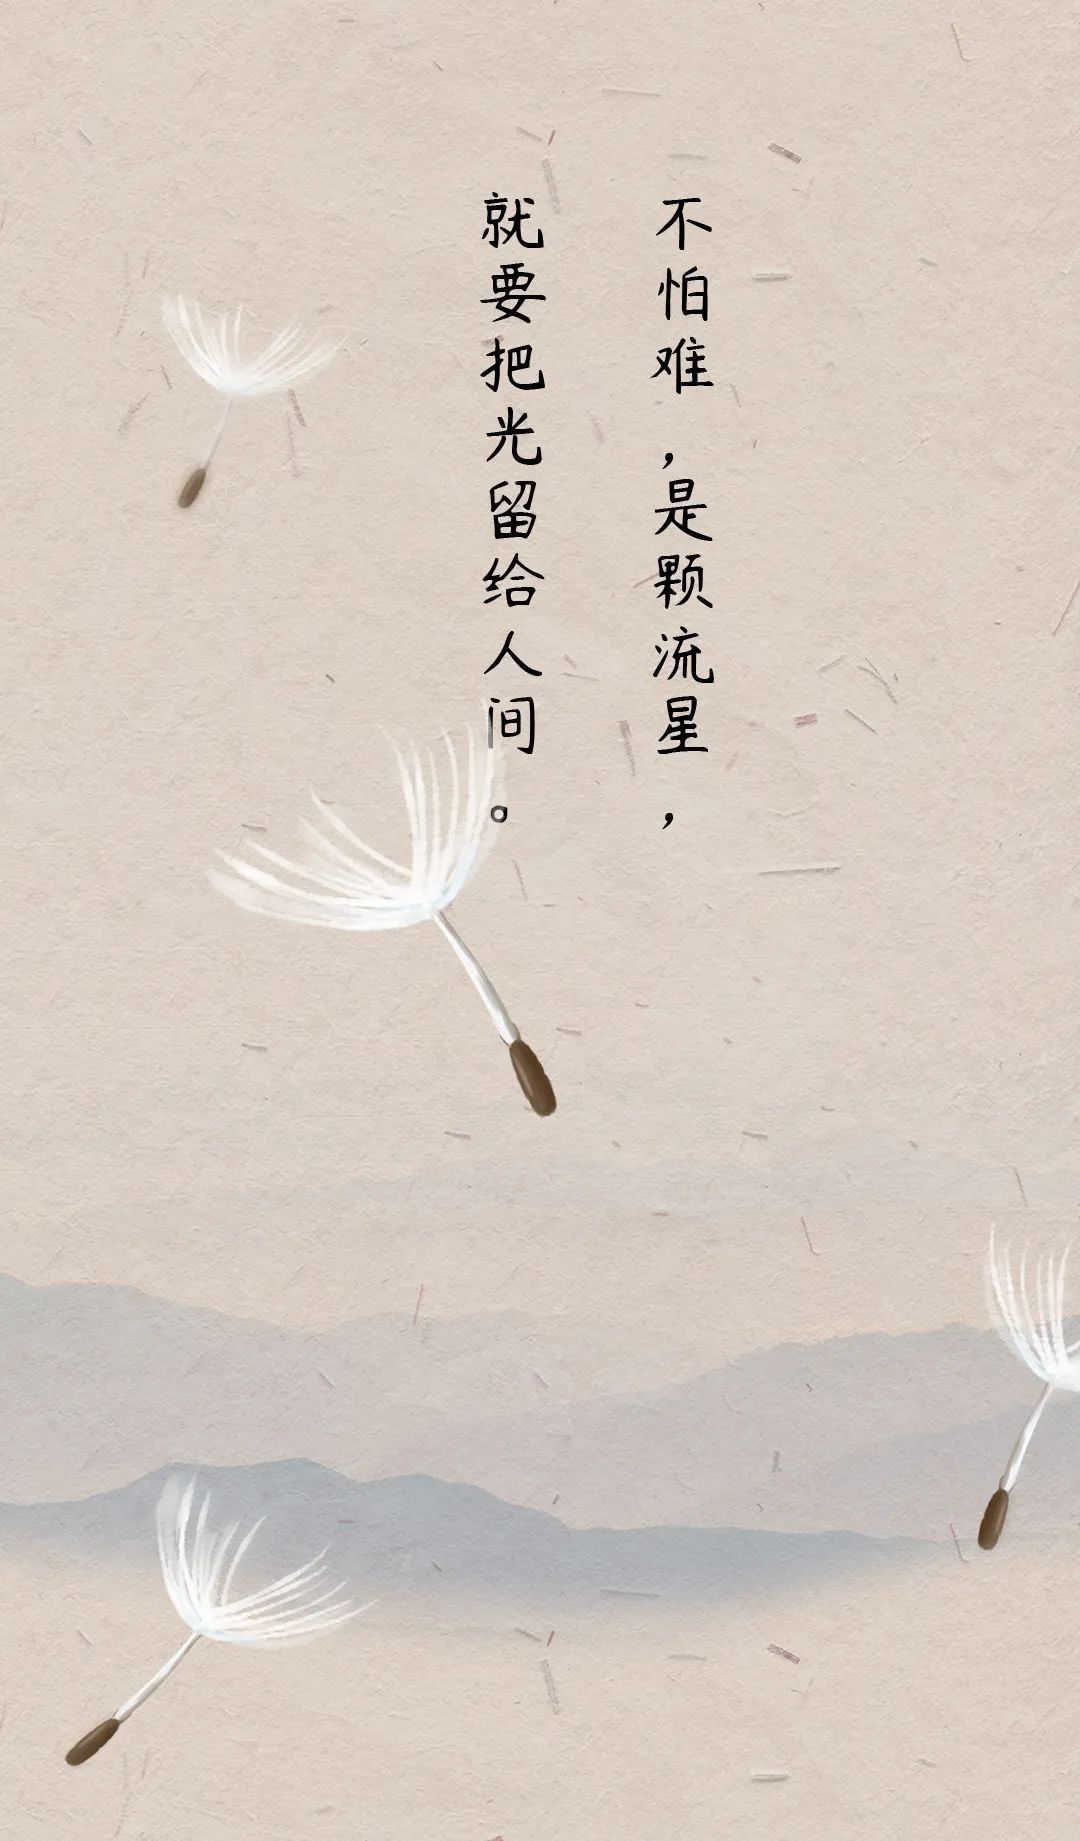 不怕难,是颗流星,
就要把光留给人间。